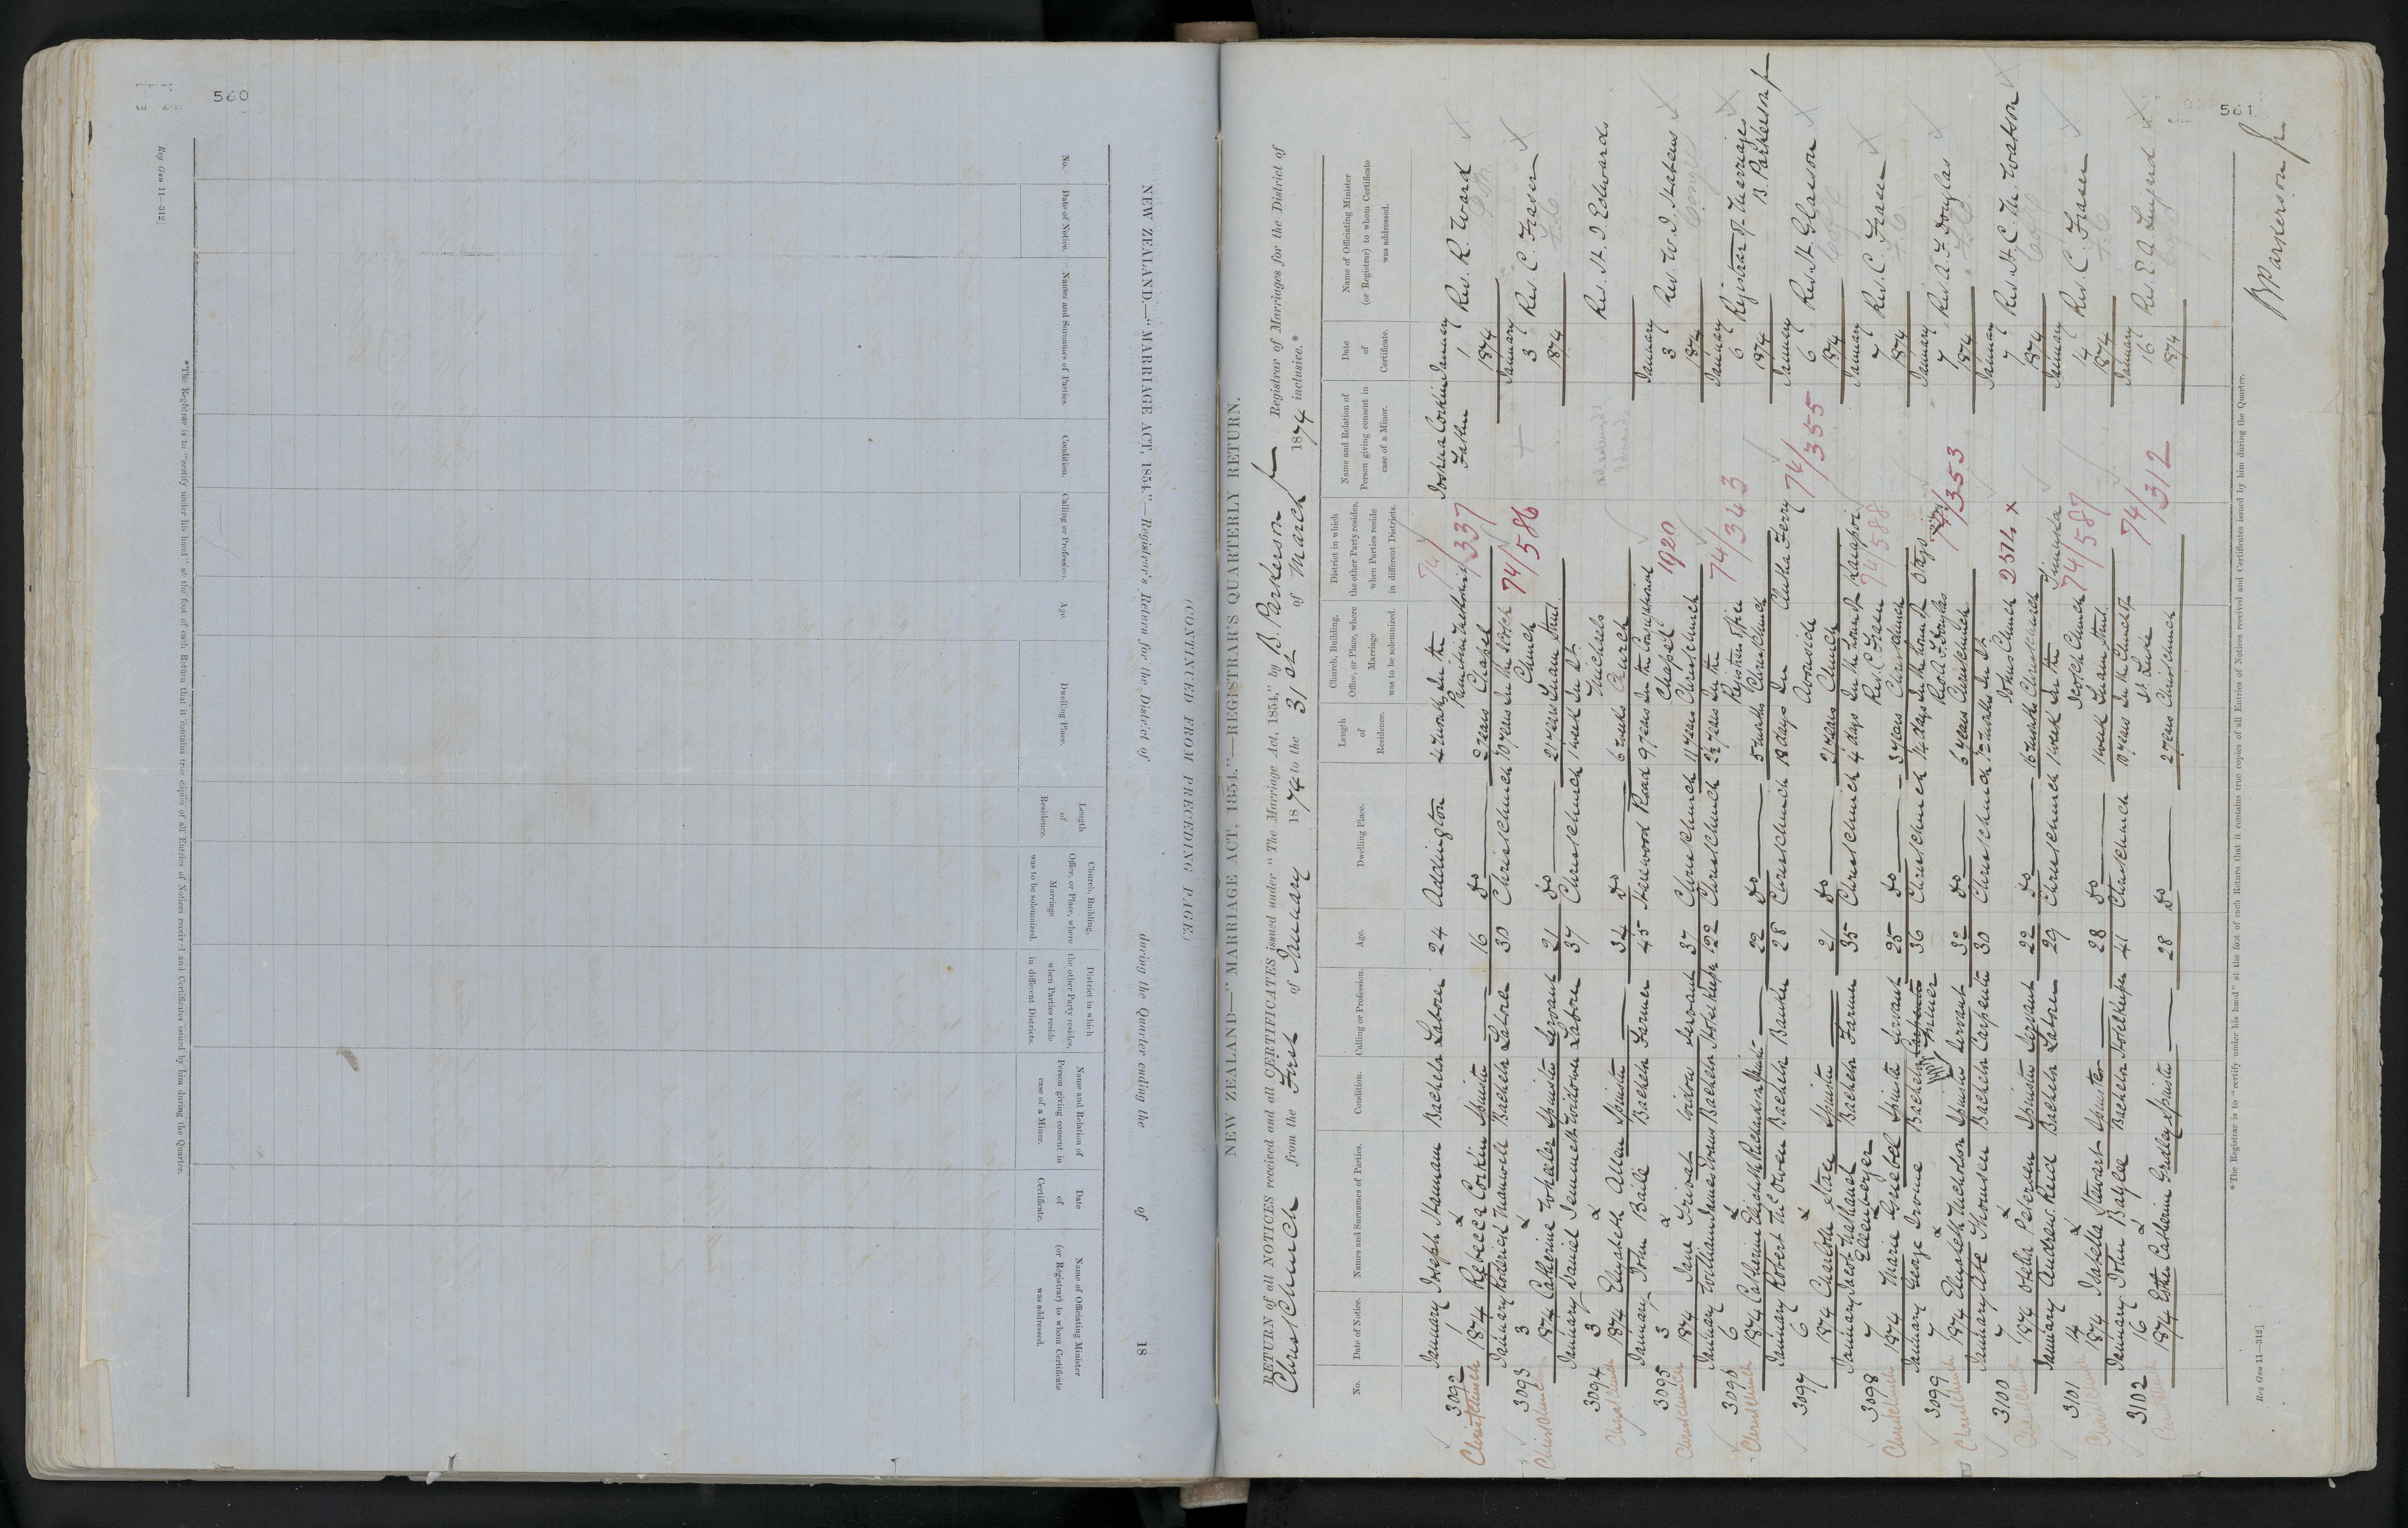 560
Reg Gen 11—312]
NEW ZEALAND.—"MARRIAGE ACT, 1854."—Registrar's Return for the District of during the Quarter ending the of 18
(CONTINUED FROM PRECEDING PAGE.)
No. Date of Notice. Names and Surnames of Parties. Condition. Calling or Profession. Age. Dwelling Place. Length of Residence. Church, Building, Office, or Place, where Marriage was to be solemnized. District in which the other Party resides, when Parties reside in different Districts. Name and Relation of Person giving consent in case of a Minor. Date of Certificate. Name of Officiating Minister (or Registrar) to whom Certificate was addressed.
*The Registrar is to "certify under his hand" at the foot of each Return that it contains true copies of all Entries of Notices received and Certificates issued by him during the Quarter.
561
NEW ZEALAND—"MARRIAGE ACT, 1854."—REGISTRAR'S QUARTERLY RETURN.
RETURN of all NOTICES received and all CERTIFICATES issued under "The Marriage Act, 1854," by B. Parkerson Registrar of Marriages for the District of
Christchurch from the First of January 1874 to the 31st of March 1874 inclusive.*
No. Date of Notice. Names and Surnames of Parties. Condition. Calling or Profession. Age. Dwelling Place. Length of Residence. Church, Building, Office, or Place, where Marriage was to be solemnized. District in which the other Party resides, when Parties reside in different Districts. Name and Relation of Person giving consent in case of a Minor. Date of Certificate. Name of Officiating Minister (or Registrar) to whom Certificate was addressed.
3092 January 1 1874 Joseph Hannam Bachelor Laborer 24 Addington 4 weeks In the Primitive Methodist Chapel 74/337 Joshua Corkin Father January 1 1874 Rev. R. Ward
Christchurch Rebecca Corkin Spinster 16 Do 2 years
3093 January 3 1874 Roderick Manwell Bachelor Laborer 30 Christchurch 10 years In the Scotch Church 74/586 January 3 1874 Rev. C. Fraser
Christchurch Catherine Wheeler Spinster Servant 21 Do 2½ years
3094 January 3 1874 Daniel Jemmett Widower Laborer 37 Christchurch 1 week In St. Michaels Church Rev. H. J. Edwards
Christchurch Elizabeth Allen Spinster 34 Do 6 weeks
3095 January 3 1874 John Baile Bachelor Farmer 45 Harewood Road 9 years In the Congregational Chapel Christchurch 1920 January 3 1874 Rev. W. J. Habens
Christchurch Jane Widow Servant 37 Christchurch 11 years
3096 January 6 1874 William James Bachelor 22 Christchurch 2½ years In the Registrars Office Christchurch 74/343 January 6 1874 Registrar of Marriages B. Parkerson
Christchurch Catherine Elizabeth Richardson Spinster 22 Do 5 months
3097 January 6 1874 Robert McOwen Bachelor Banker 28 Christchurch 18 days In Avonside Church 74/355 January 6 1874 Rev. H. Glasson
Charlotte Spinster 21 Do 21 years
3098 January 7 1874 Jacob Nathaniel Ellenberger Bachelor Farmer 35 Christchurch 4 days In the house of Rev. C. Fraser Christchurch Kaiapoi 74/588 January 7 1874 Rev. C. Fraser
Christchurch Marie Griebel Spinster Servant 25 Do 3 years
3099 January 7 1874 George Irvine Bachelor Farmer 36 Christchurch 14 days In the house of Rev. A. F. Douglas Christchurch Otago 74/353 January 7 1874 Rev. A. F. Douglas
Christchurch Elizabeth Nicholson Spinster Servant 32 Do 6 years
3100 January 7 1874 Abe Thomsen Bachelor Carpenter 30 Christchurch 12 months In St. Johns Church Christchurch 2574 January 7 1874 Rev. H. C. M. Watson
Christchurch Petersen Spinster Servant 22 Do 16 months
3101 January 14 1874 Andrew Reid Bachelor Laborer 29 Christchurch 1 week In the Scotch Church 74/587 January 14 1874 Rev. C. Fraser
Christchurch Isabella Stewart Spinster 28 Do 1 week
3102 January 16 1874 John Baylee Bachelor Hotelkeeper 41 Christchurch 10 years In the Church of St. Luke Christchurch 74/312 January 16 1874 Rev. E. A. Lingard
Christchurch Esther Catherine Spinster 28 Do 2 years
B Parkerson
*The Registrar is to "certify under his hand" at the foot of each Return that it contains true copies of all Entries of Notices received and Certificates issued by him during the Quarter.
Reg Gen 11—312]